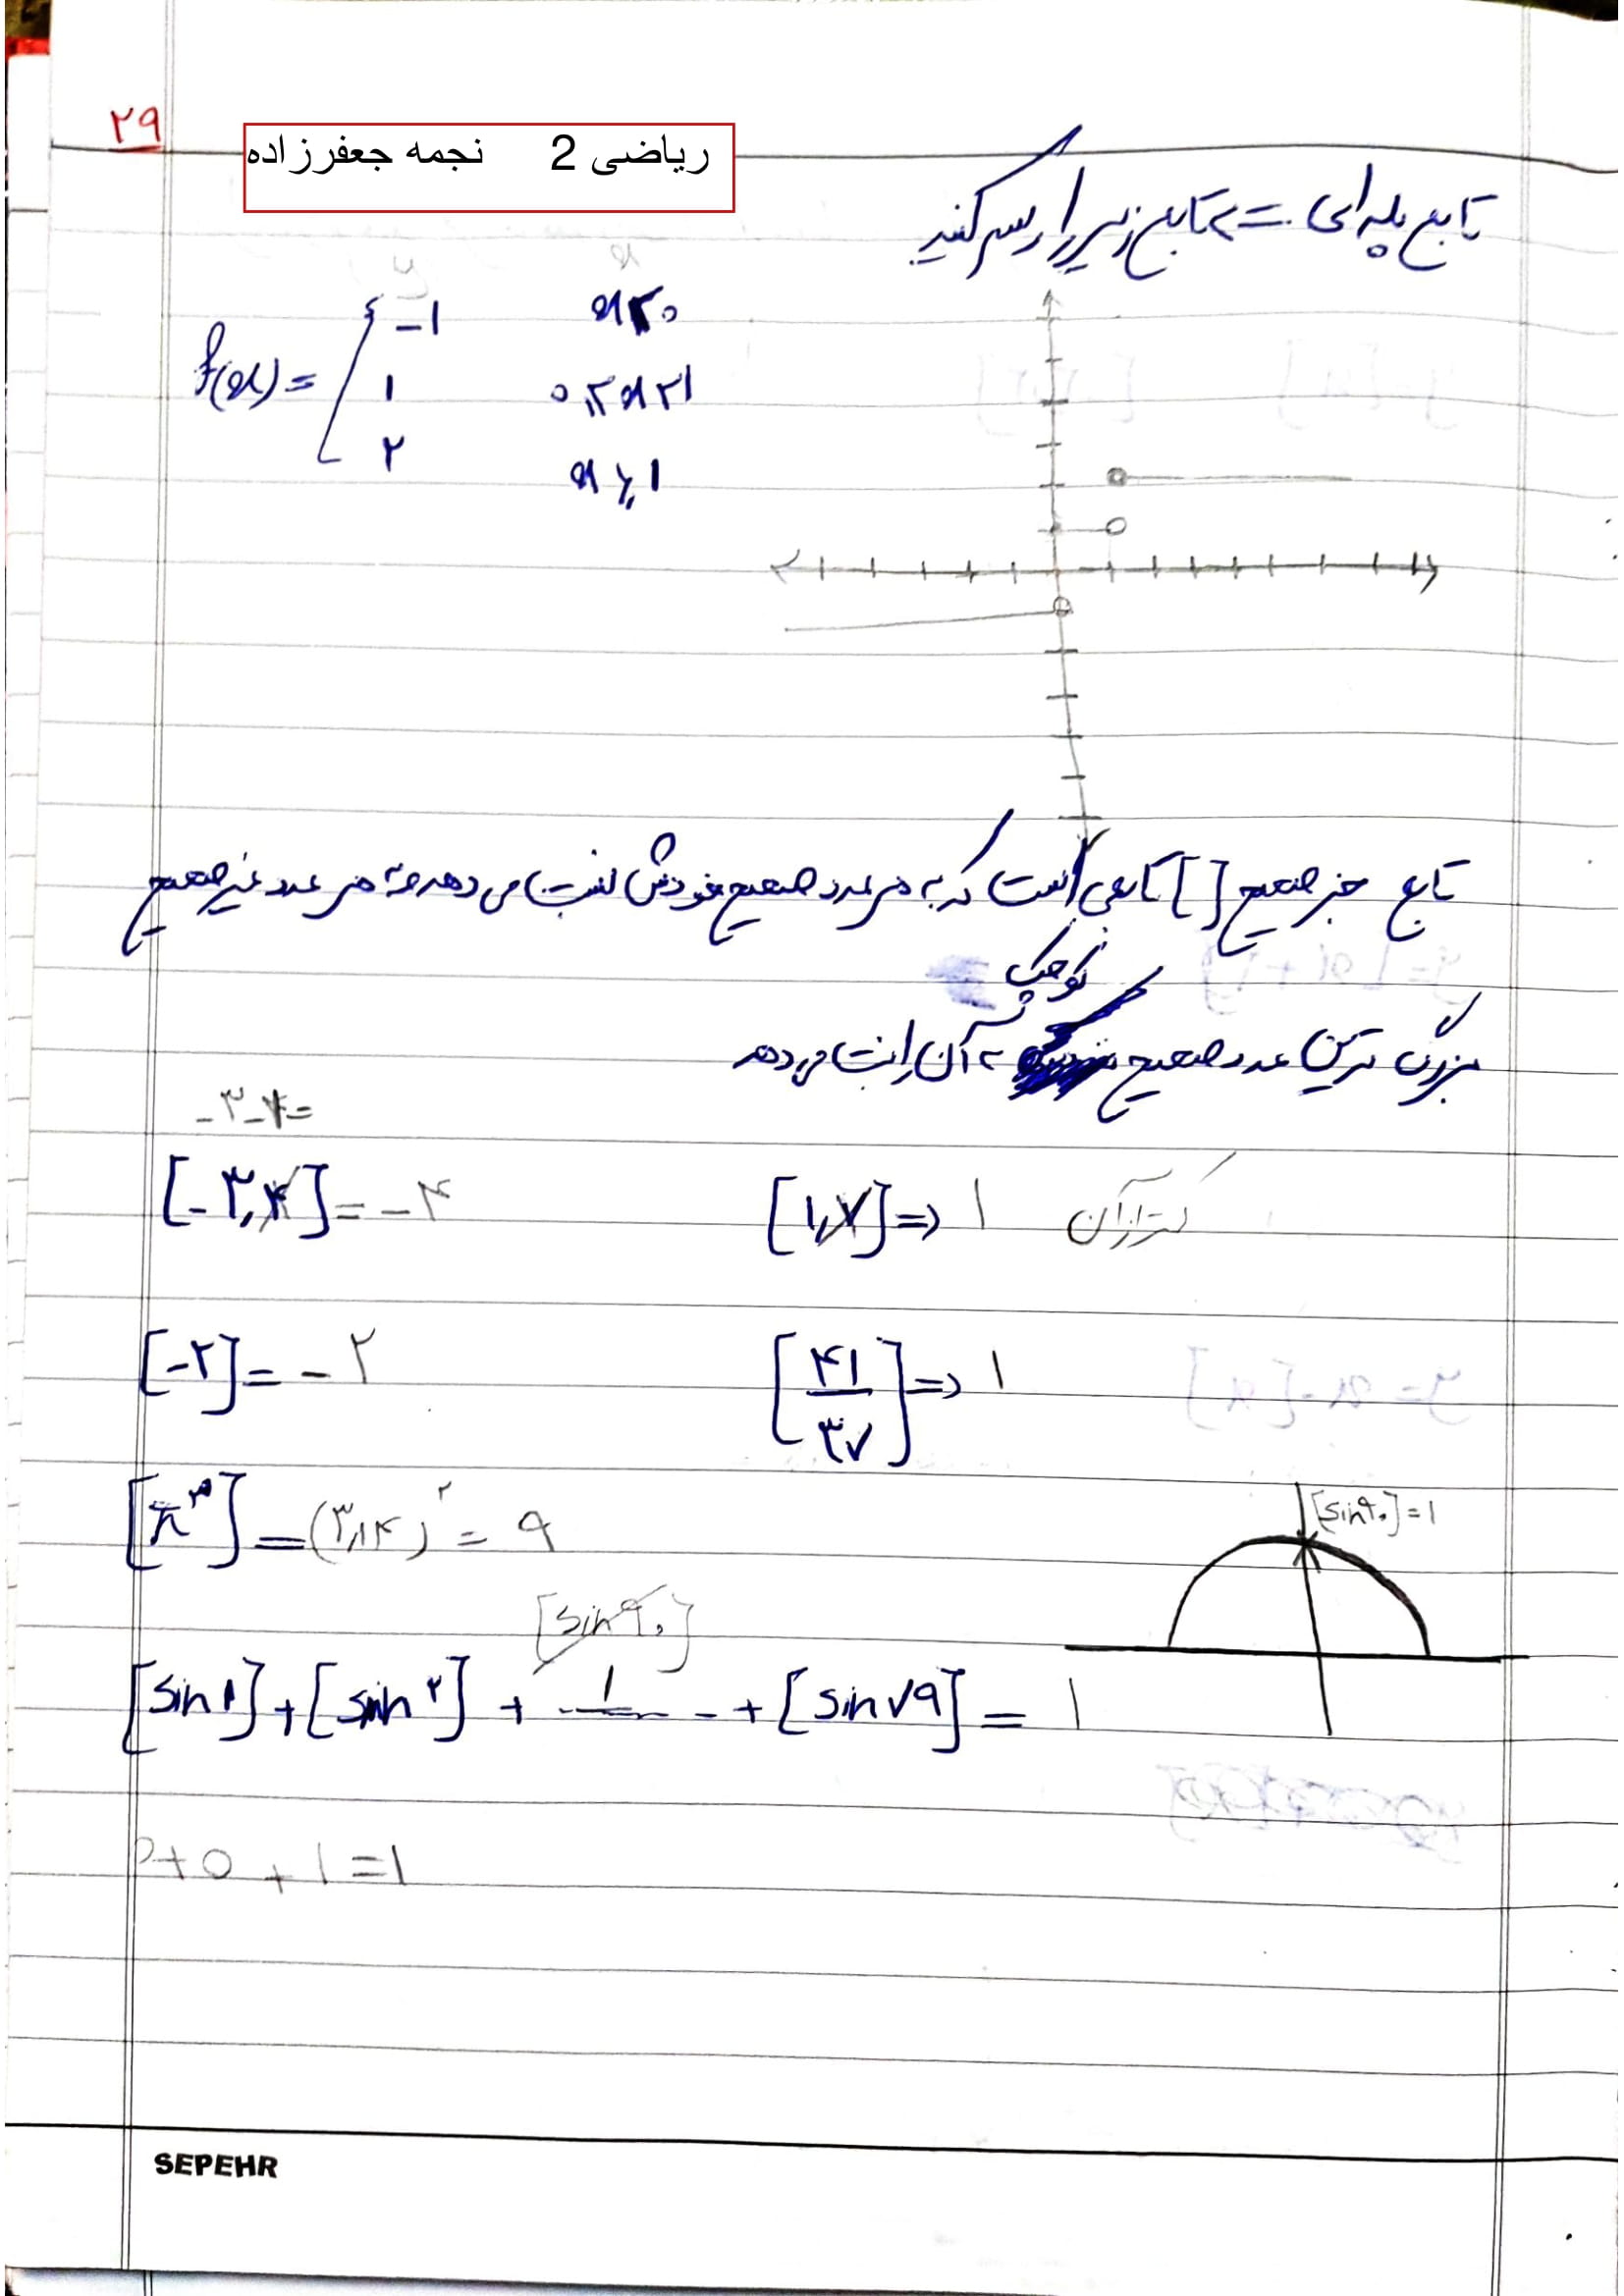 ۲۹
ریاضی 2 نجمه جعفرزاده
تابع پله ای => تابع زیر را رسم کنید
f(x) = { -1 x<0
1 0≤x<1
۲ x≥1
تابع جزصحیح [ ] تابعی است که به هر عدد صحیح خودش نسبت می دهد و به هر عدد غیرصحیح
بزرگ ترین عدد صحیح کوچکتر از آن را نسبت می دهد
-۳-۴=
[-۳,۴] = -۴ [۱,۷] => ۱ کمتر از آن
[-۲] = -۲ [۴۱/۳۷] => ۱
[π²] = (۳,۱۴)² = ۹ [sin۹۰]=1
[sin۹۰]
[sin۱]+[sin۲] + ... ۱ ... + [sin۷۹] = ۱
0+0+1=1
SEPEHR